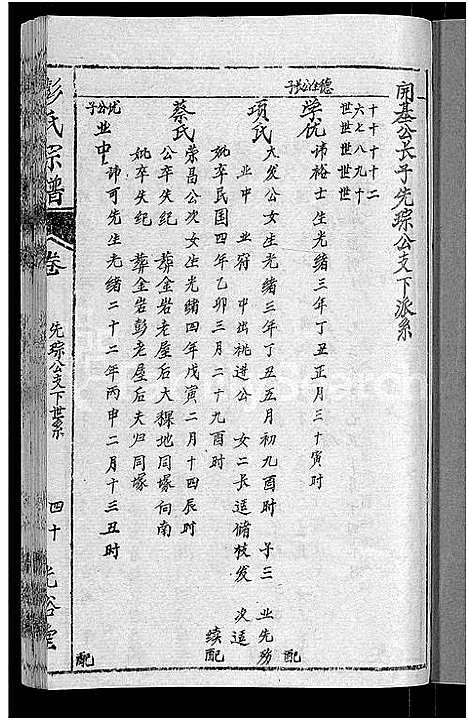 開基公長子先琮公支下派系
十六世
十七世
十八世
十九世
二十世
德位公長子
学优 讳裕士生光緒三年丁丑正月三十寅时 配
項氏 大发公女生光緒三年丁丑五月初九酉时 子三 业先殇
业中 业府 中出祧進公 女二長适储枝发 次适
妣卒民国四年乙卯三月二十九酉时 续配
蔡氏 荣昌公次女生光緒四年戊寅二月十四辰时
公卒失纪 葬金岩老屋后大稞地同塚向南
妣卒失纪 葬金岩彭老屋后夫归同塚
优公子
业中 讳可先生光緒二十二年丙申二月十三丑时 配
彭氏宗譜
卷
先琮公支下世系
四十
光裕堂